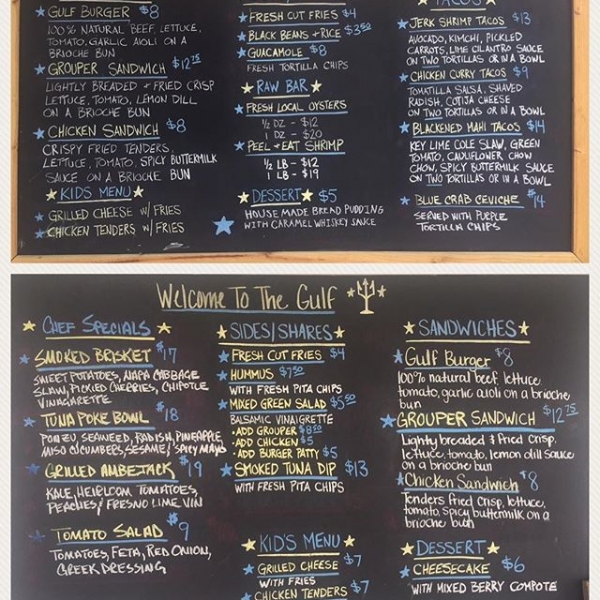 GULF BURGER $8
100% NATURAL BEEF, LETTUCE,
TOMATO, GARLIC AIOLI ON A
BRIOCHE BUN
GROUPER SANDWICH $12.75
LIGHTLY BREADED + FRIED CRISP
LETTUCE, TOMATO, LEMON DILL
ON A BRIOCHE BUN
CHICKEN SANDWICH $8
CRISPY FRIED TENDERS,
LETTUCE, TOMATO, SPICY BUTTERMILK
SAUCE ON A BRIOCHE BUN
KIDS MENU
GRILLED CHEESE W/ FRIES
CHICKEN TENDERS W/ FRIES
FRESH CUT FRIES $4
BLACK BEANS + RICE $3.50
GUACAMOLE $8
FRESH TORTILLA CHIPS
RAW BAR
FRESH LOCAL OYSTERS
1/2 DZ - $12
1 DZ - $20
PEEL + EAT SHRIMP
1/2 LB - $12
1 LB - $19
DESSERT $5
HOUSE MADE BREAD PUDDING
WITH CARAMEL WHISKEY SAUCE
TACOS
JERK SHRIMP TACOS $13
AVOCADO, KIMCHI, PICKLED
CARROTS, LIME CILANTRO SAUCE
ON TWO TORTILLAS OR IN A BOWL
CHICKEN CURRY TACOS $9
TOMATILLA SALSA, SHAVED
RADISH, COTIJA CHEESE
ON TWO TORTILLAS OR IN A BOWL
BLACKENED MAHI TACOS $14
KEY LIME COLE SLAW, GREEN
TOMATO, CAULIFLOWER CHOW
CHOW, SPICY BUTTERMILK SAUCE
ON TWO TORTILLAS OR IN A BOWL
BLUE CRAB CEVICHE $14
SERVED WITH PURPLE
TORTILLA CHIPS
Welcome To The Gulf
CHEF SPECIALS
SMOKED BRISKET $17
SWEET POTATOES, NAPA CABBAGE
SLAW, PICKLED CHERRIES, CHIPOTLE
VINAIGARETTE
TUNA POKE BOWL $18
PONZU, SEAWEED, RADISH, PINEAPPLE,
MISO CUCUMBERS, SESAME/SPICY MAYO
GRILLED AMBEJACK $19
KALE, HEIRLOOM TOMATOES,
PEACHES/FRESNO LIME VIN
TOMATO SALAD $9
TOMATOES, FETA, RED ONION,
GREEK DRESSING
SIDES/SHARES
FRESH CUT FRIES $4
HUMMUS $7.50
WITH FRESH PITA CHIPS
MIXED GREEN SALAD $5.50
BALSAMIC VINAIGRETTE
-ADD GROUPER $8.50
-ADD CHICKEN $5
-ADD BURGER PATTY $5
SMOKED TUNA DIP $13
WITH FRESH PITA CHIPS
KID'S MENU
GRILLED CHEESE $7
WITH FRIES
CHICKEN TENDERS $7
SANDWICHES
Gulf Burger $8
100% natural beef, lettuce
tomato, garlic aioli on a brioche
bun
GROUPER SANDWICH $12.75
Lightly breaded + fried crisp,
lettuce, tomato, lemon dill sauce
on a brioche bun
Chicken Sandwich $8
Tenders fried crisp, lettuce,
tomato, spicy buttermilk on a
brioche bun
DESSERT
CHEESECAKE $6
WITH MIXED BERRY COMPOTE